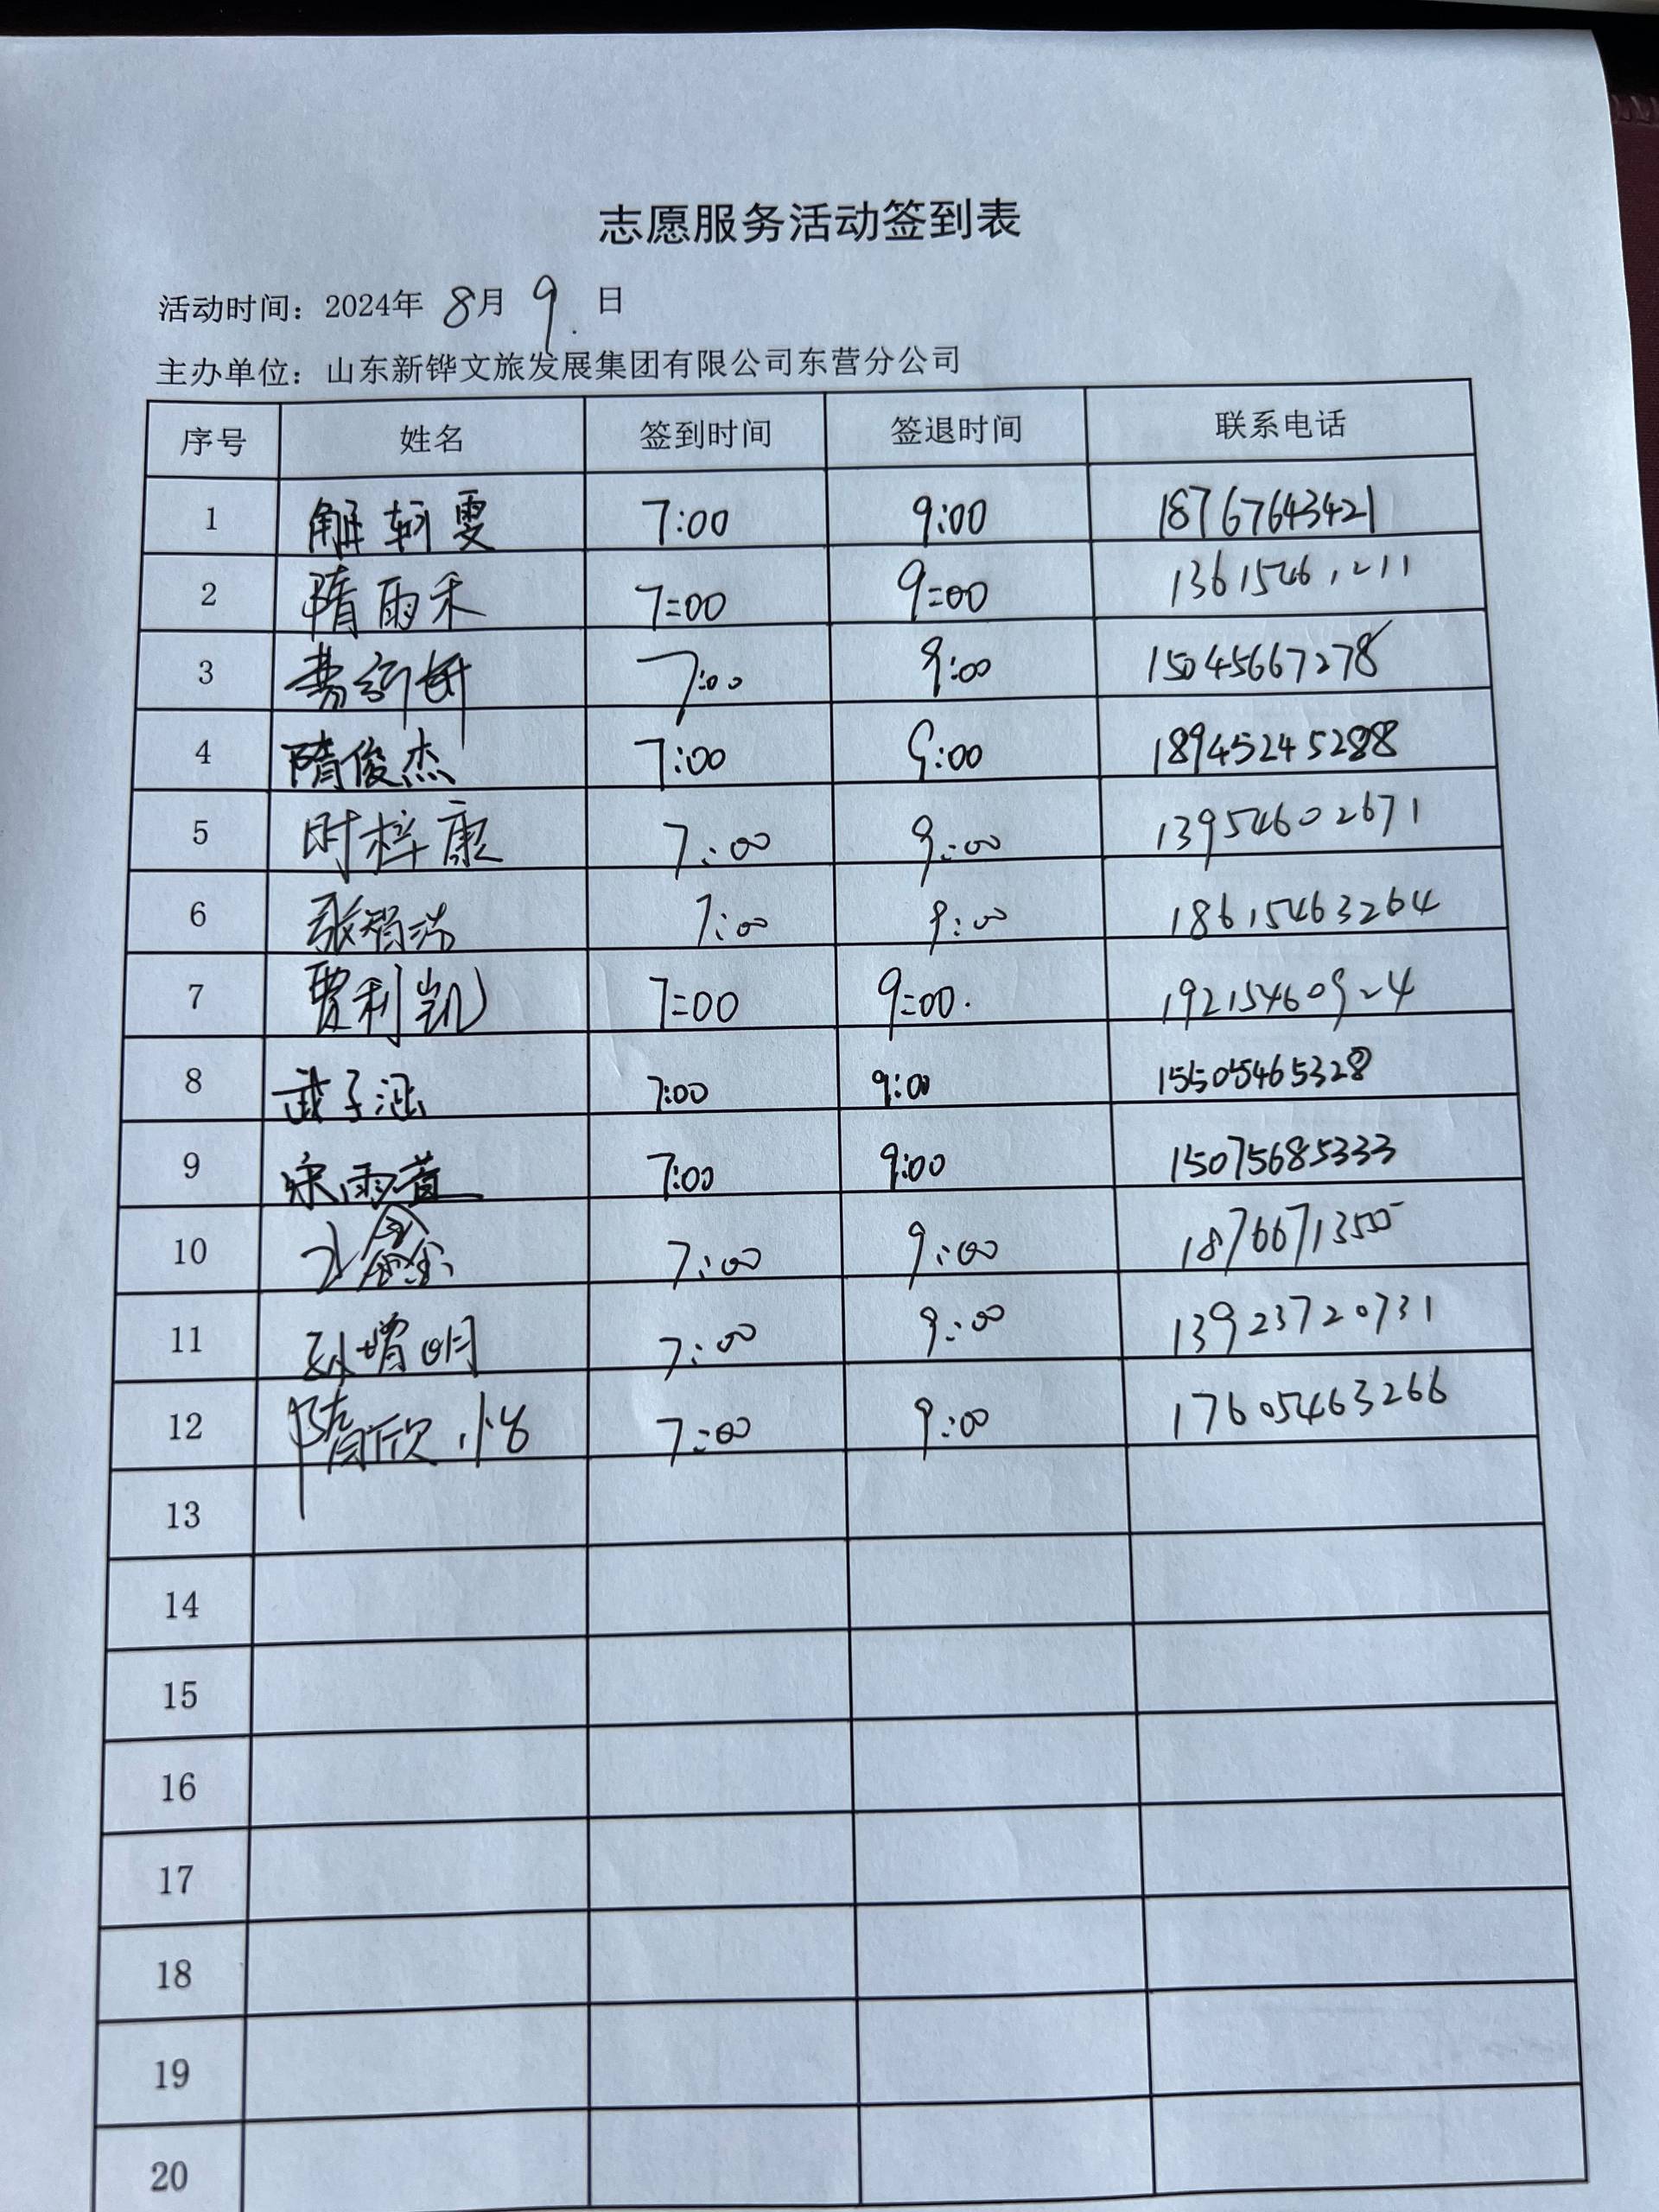 志愿服务活动签到表
活动时间：2024年 8月 9 日
主办单位：山东新铧文旅发展集团有限公司东营分公司
序号 姓名 签到时间 签退时间 联系电话
1 解轲雯 7:00 9:00 18767643421
2 隋雨禾 7:00 9:00 13615461211
3 7:00 9:00 15045667278
4 隋俊杰 7:00 9:00 18945245288
5 时梓康 7:00 9:00 13954602671
6 张智瑞 7:00 9:00 18615463264
7 贾利凯 7:00 9:00. 19215460924
8 武子涵 7:00 9:00 15505465328
9 宋雨萱 7:00 9:00 15075685333
10 7:00 9:00 18766713505
11 孙增明 7:00 9:00 13923720731
12 隋欣怡 7:00 9:00 17605463266
13
14
15
16
17
18
19
20